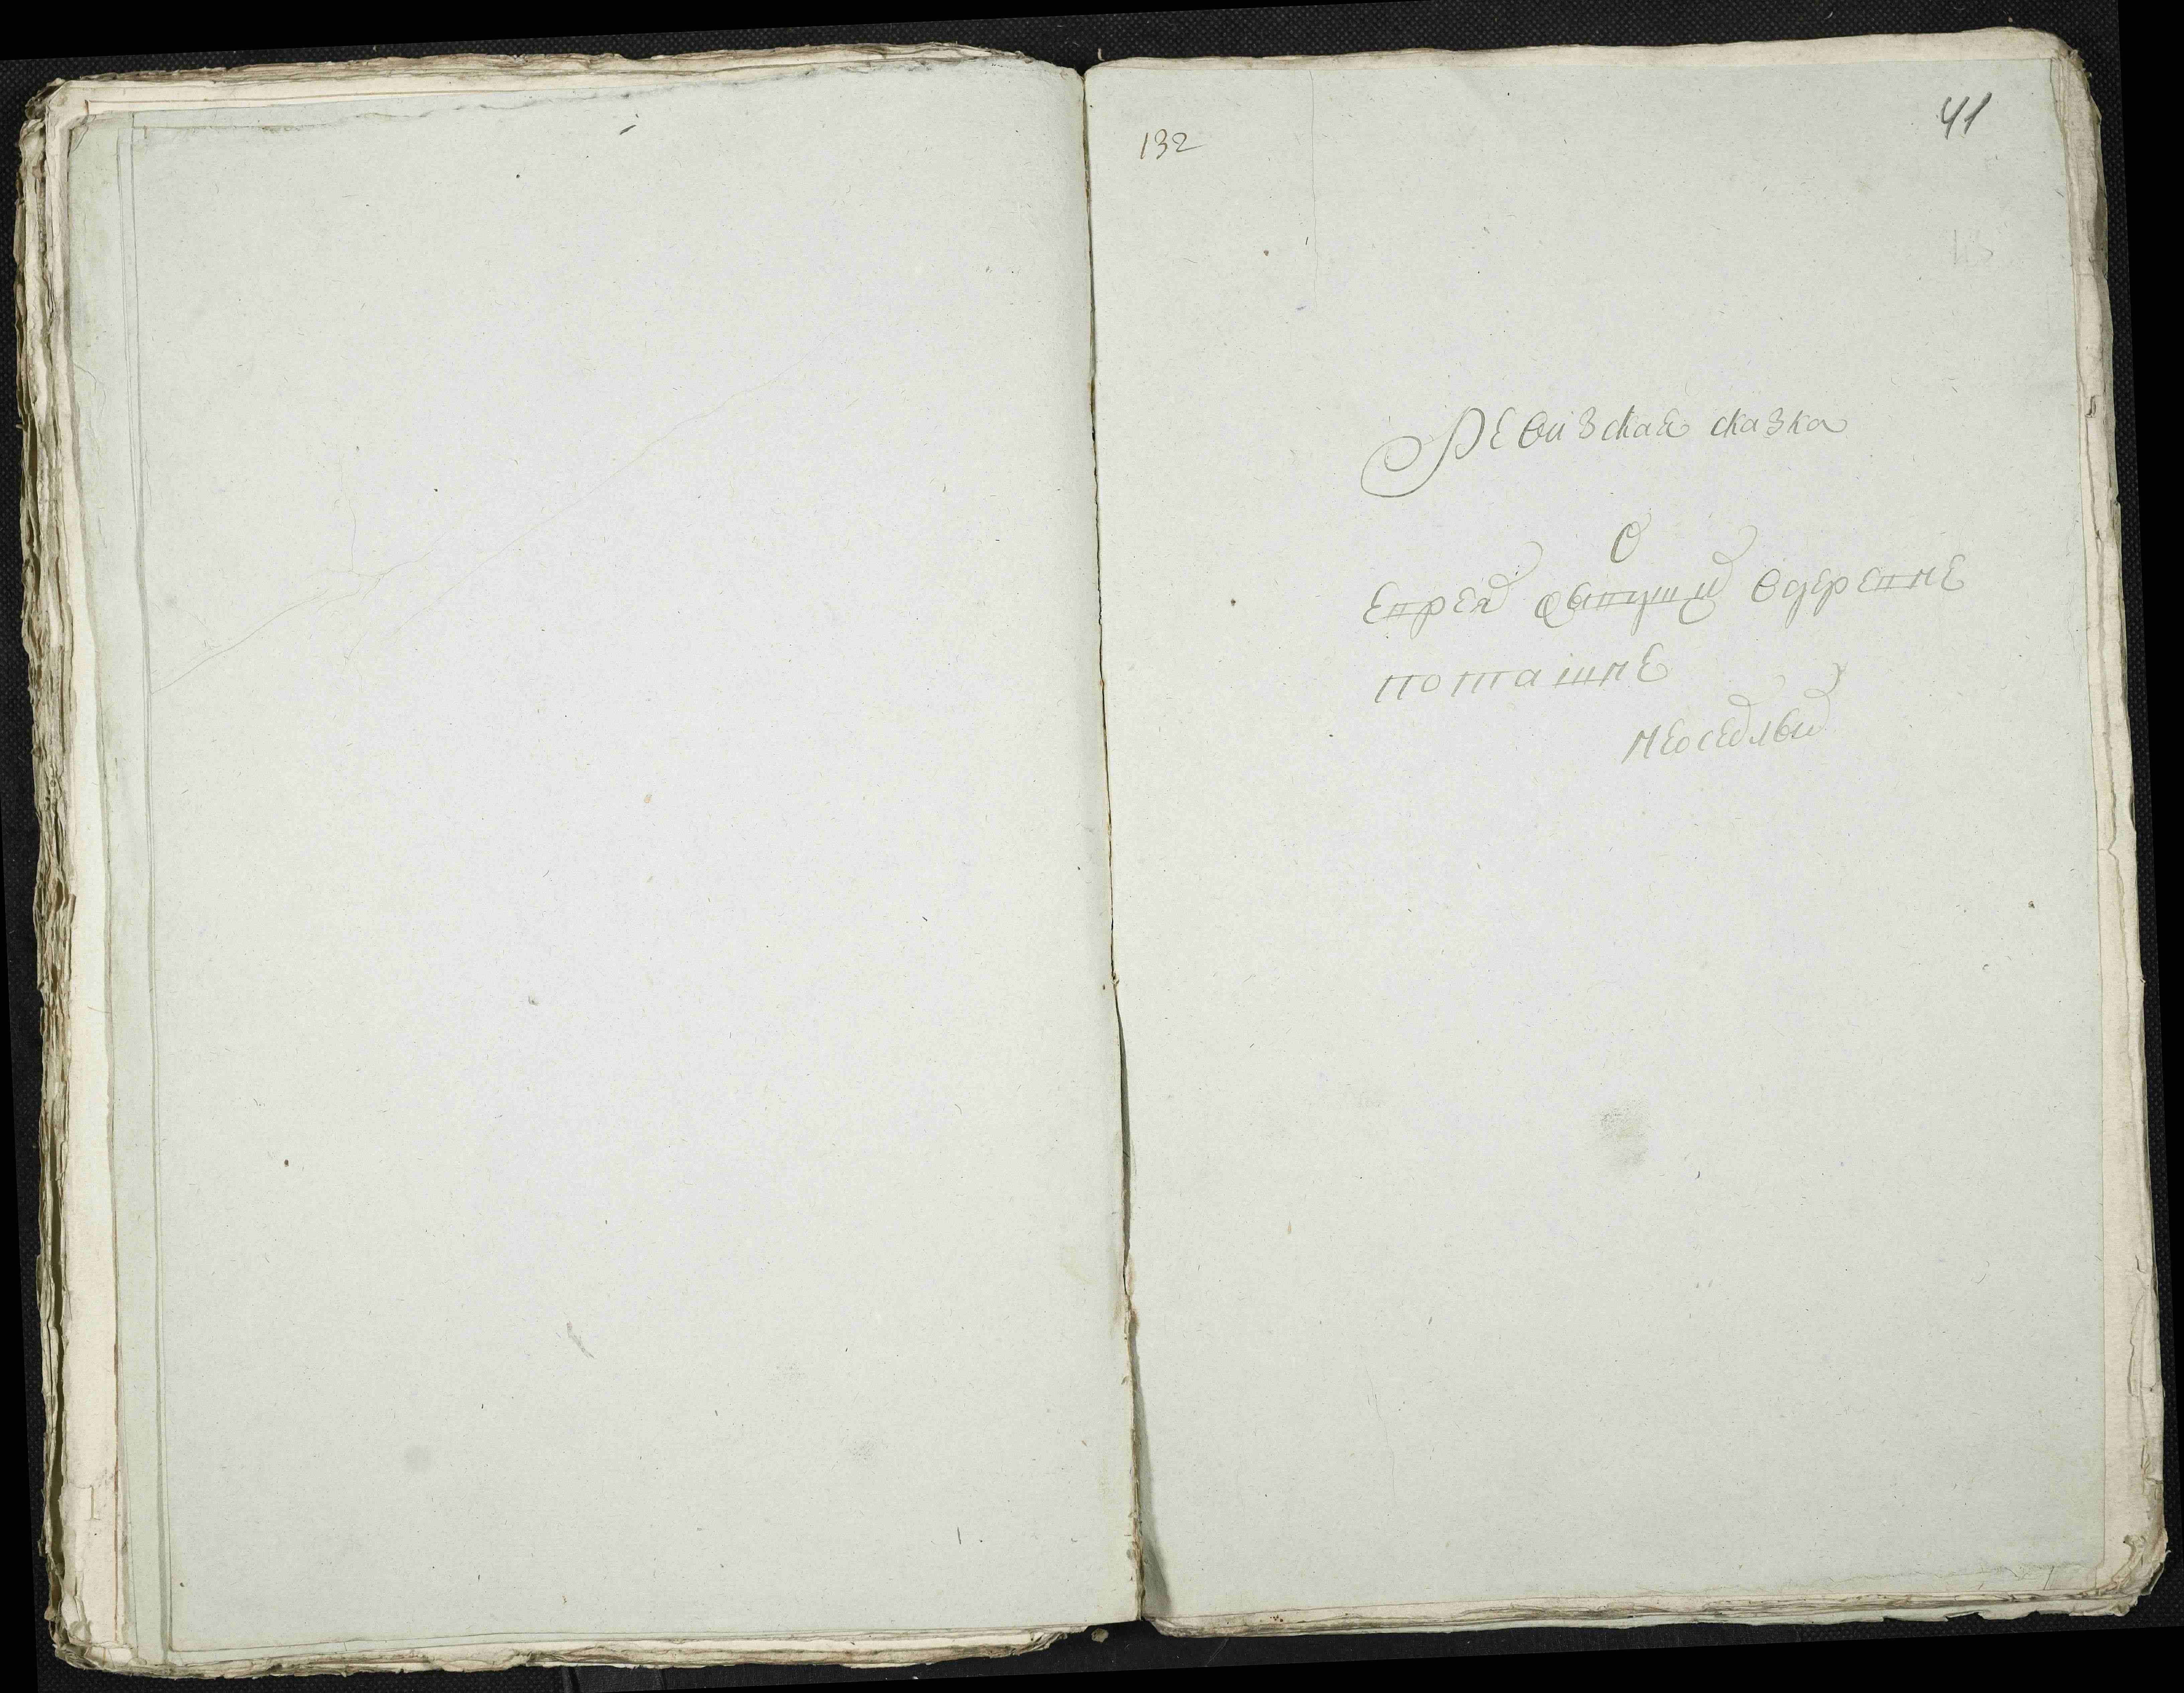 132
41
Ревизская сказка
О
Евреях живущих вдеревне
поташне
неоседлых